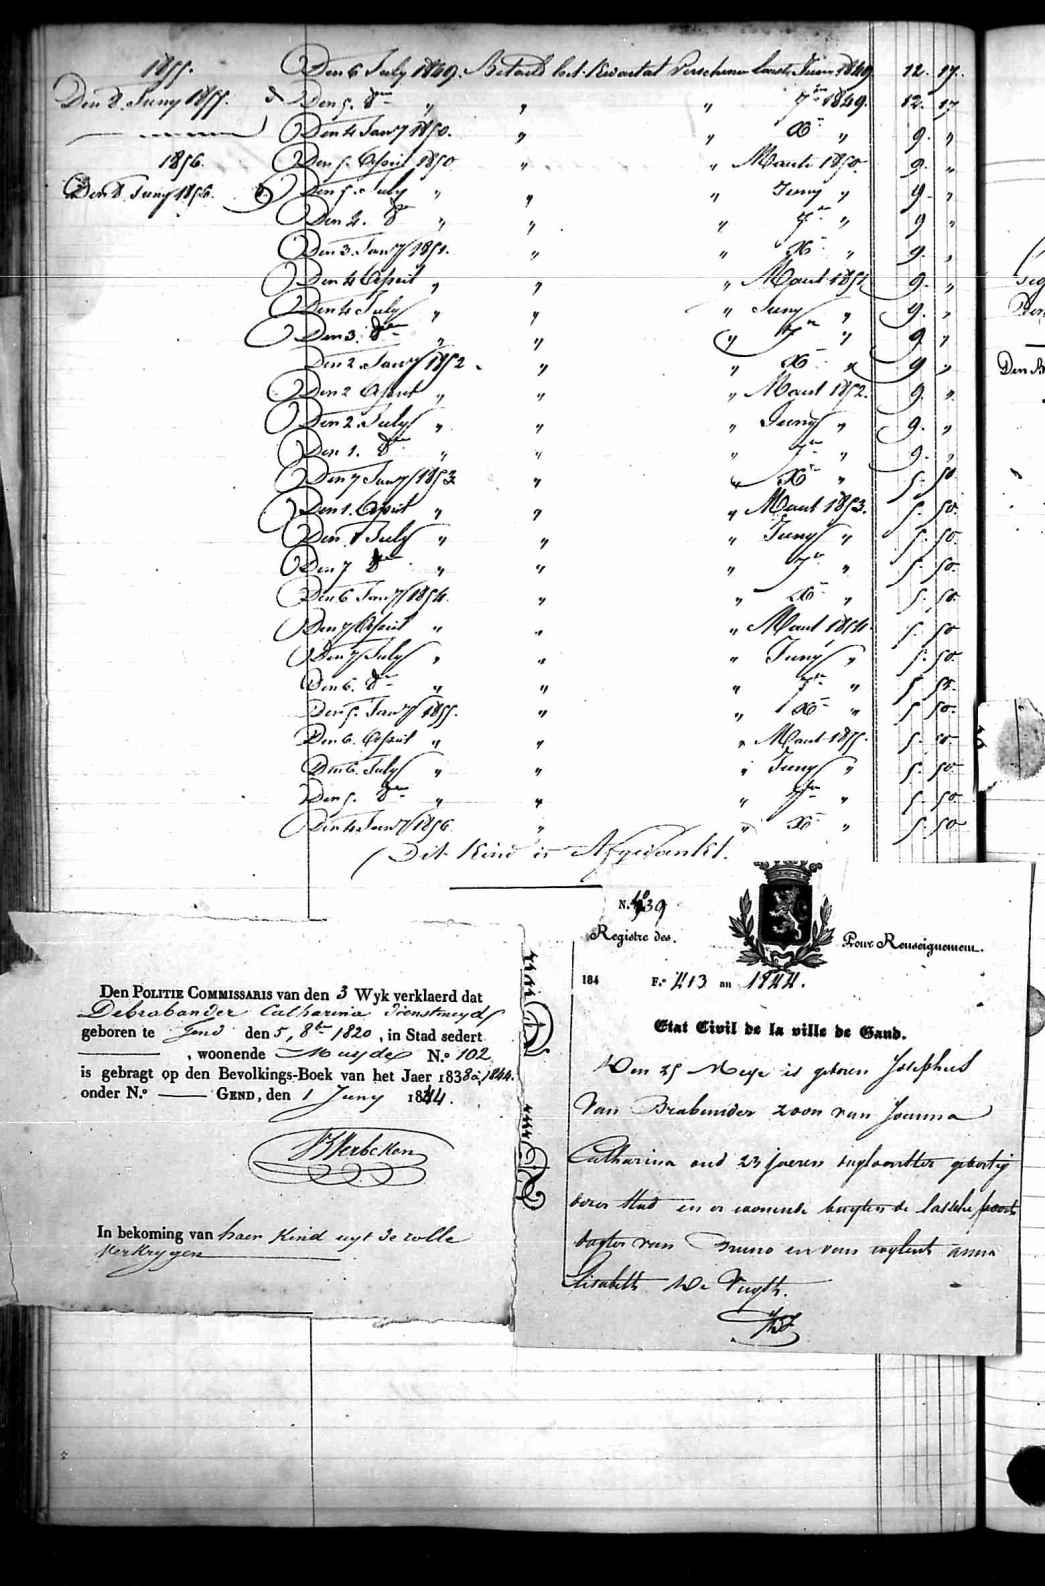 1855.
Den 8 Juny 1855.
1856.
Den 8 Juny 1856.
Den 6 July 1849. Betaelt het Kwartat Verschenen laast Juny 1849. 12. 17.
Den 5. 8er " " " 7er 1849. 12. 17
Den 4 Janry 1850. " " Xer " 9. "
Den 5. April 1850 " " Maart 1850. 9. "
Den 5. July " " " Juny " 9. "
Den 2. 8er " " " 7er " 9 "
Den 3. Janry 1851. " " Xer " 9. "
Den 4 April " " " Maart 1851 9. "
Den 4 July " " " Juny " 9. "
Den 3. 8er " " " 7er " 9 "
Den 2 Janry 1852. " " Xer " 9 "
Den 2 April " " " Maart 1852. 9. "
Den 2 July " " " Juny " 9. "
Den 1. 8er " " " 7er " 9. "
Den 7 Janry 1853 " " Xer " 5. 50
Den 1. April " " " Maart 1853. 5. 50.
Den 1 July " " " Juny " 5. 50.
Den 7 8er " " " 7er " 5. 50.
Den 6 Janry 1854. " " Xer " 5. 50.
Den 7 April " " " Maart 1854. 5. 50
Den 7 July " " " Juny " 5. 50.
Den 6. 8er " " " 7er " 5 50.
Den 5. Janry 1855. " " Xer " 5 50.
Den 6. April " " " Maart 1855. 5. 50.
Den 6. July " " " Juny " 5. 50
Den 5. 8er " " " 7er " 5. 50
Den 4 Janry 1856 " " Xer " 5. 50
Dit Kind is Afgedankt.
Den POLITIE COMMISSARIS van den 3 Wyk verklaerd dat
Debrabander Catharina dienstmeyd
geboren te Gend den 5, 8er 1820, in Stad sedert
, woonende Muyde N.o 102
is gebragt op den Bevolkings-Boek van het Jaer 1838 à 1844.
onder N.o GEND, den 1 Juny 1844.
In bekoming van haer Kind uyt de rolle
Verkrygen
N. 439
Registre des. Pour Renseignement.
184 F.o 413 an 1844.
Etat Civil de la ville de Gand.
Den 25 Meye is geboren Josephus
Van Brabander zoon van Joanna
Catharina oud 23 jaeren geboortig
dezer Stad en er woonende buyten de poort
dogter van Bruno en van Anna
Elisabeth De Vuyst.
Den